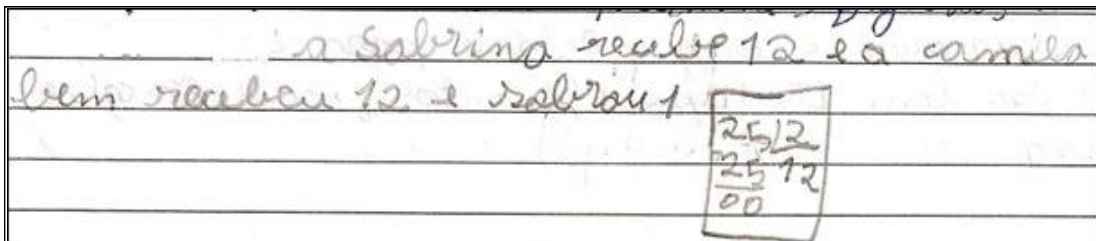 a Sabrina recebe 12 e a camila
bem recebeu 12 e sobrou 1
25 2
25 12
00